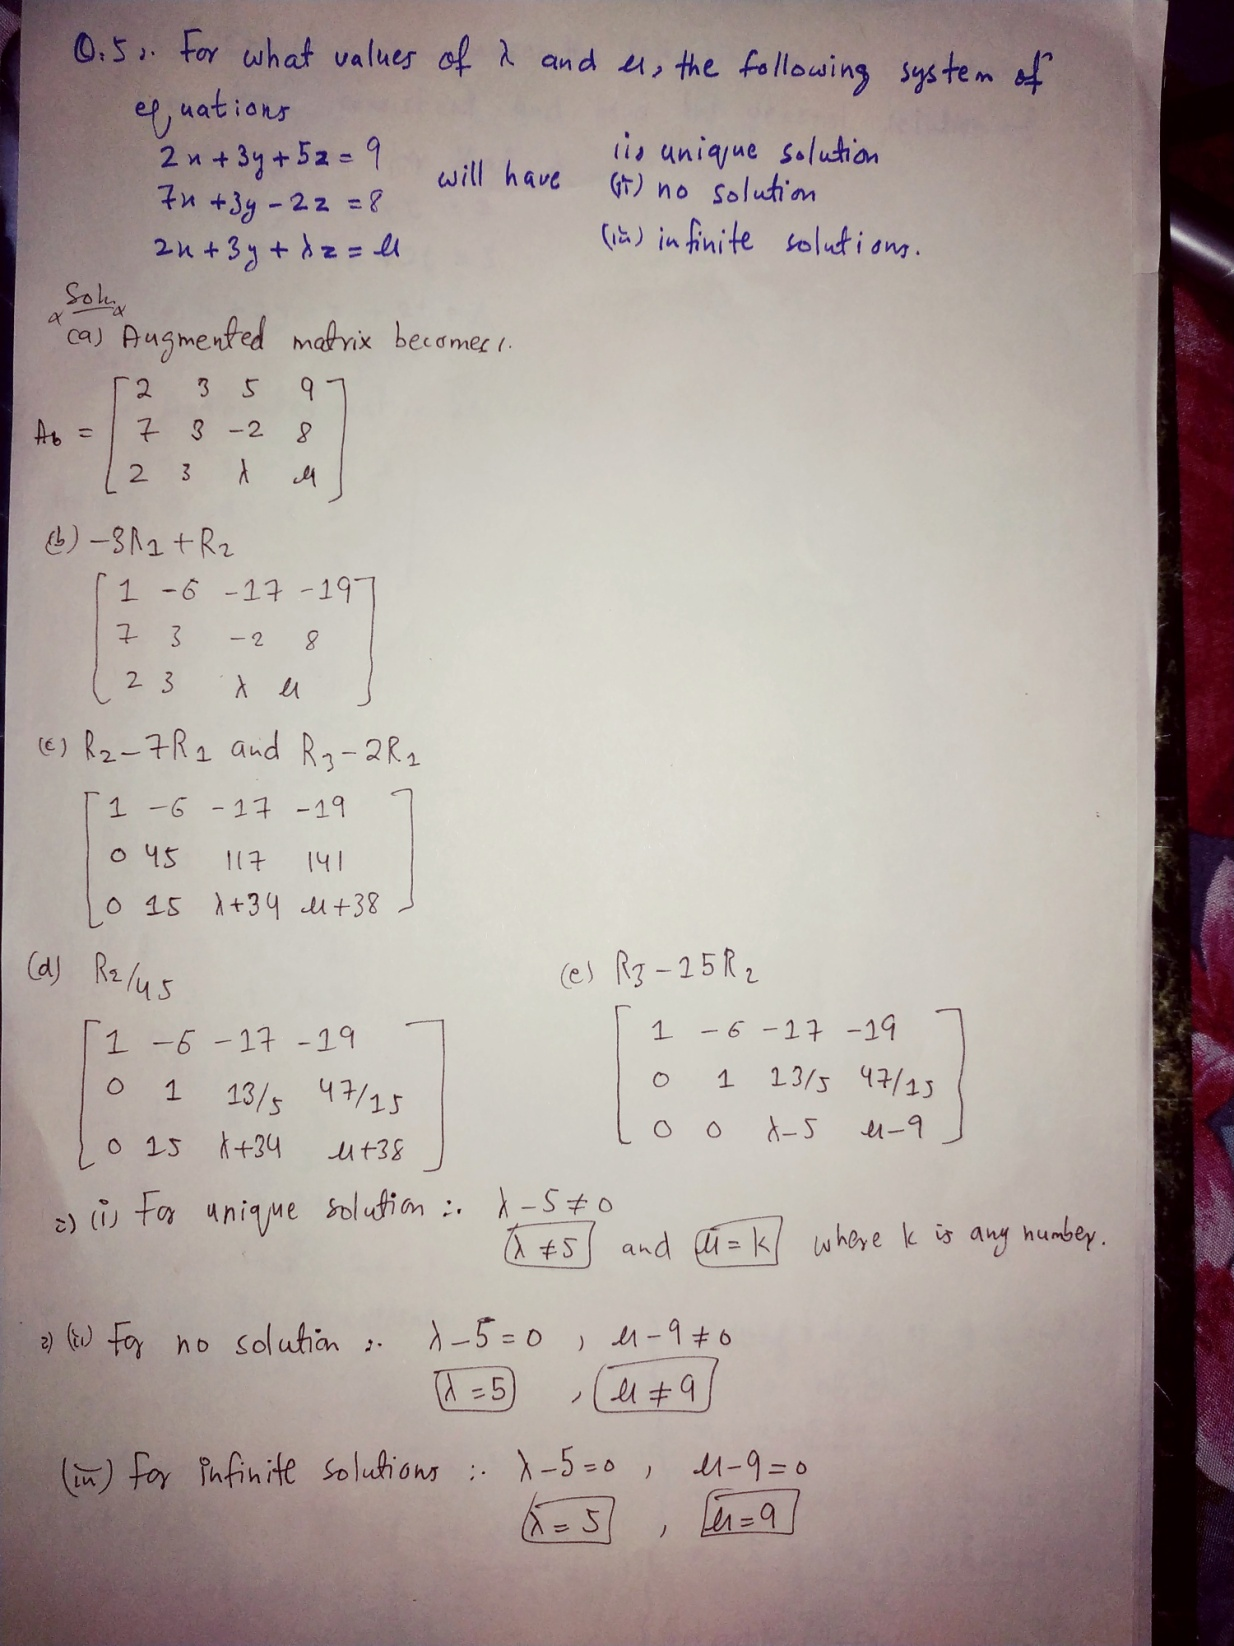 Q.5:. For what values of λ and μ, the following system of
equations
2x + 3y + 5z = 9
7x + 3y - 2z = 8
2x + 3y + λz = μ
will have
(i) unique solution
(ii) no solution
(iii) infinite solutions.
Soln
(a) Augmented matrix becomes:.
2 3 5 9
Ab = 7 3 -2 8
2 3 λ μ
(b) -3R1 + R2
1 -6 -17 -19
7 3 -2 8
2 3 λ μ
(c) R2 - 7R1 and R3 - 2R1
1 -6 -17 -19
0 45 117 141
0 15 λ+34 μ+38
(d) R2/45
1 -6 -17 -19
0 1 13/5 47/15
0 15 λ+34 μ+38
(e) R3 - 15R2
1 -6 -17 -19
0 1 13/5 47/15
0 0 λ-5 μ-9
(i) For unique solution :. λ - 5 ≠ 0
λ ≠ 5 and μ = k where k is any number.
(ii) For no solution :. λ - 5 = 0 , μ - 9 ≠ 0
λ = 5 , μ ≠ 9
(iii) for infinite solutions :. λ - 5 = 0 , μ - 9 = 0
λ = 5 , μ = 9